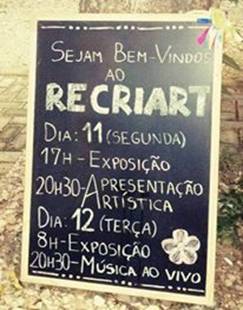 SEJAM BEM-VINDOS
AO
RECRIART
DIA: 11 (SEGUNDA)
17H - EXPOSIÇÃO
20H30 - APRESENTAÇÃO
ARTÍSTICA
DIA: 12 (TERÇA)
8H - EXPOSIÇÃO
20H30 - MÚSICA AO VIVO